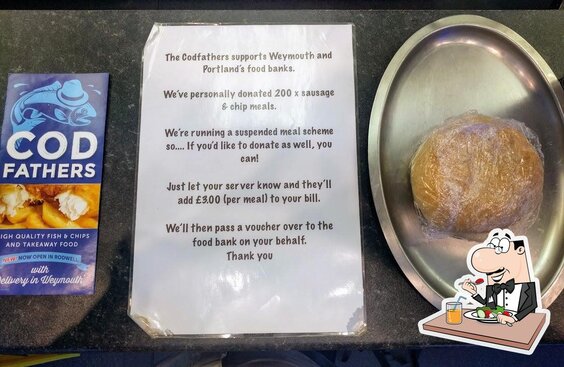 COD
FATHERS
HIGH QUALITY FISH & CHIPS
AND TAKEAWAY FOOD
NEW NOW OPEN IN RODWELL
with
Delivery in Weymouth
The Codfathers supports Weymouth and
Portland's food banks.
We've personally donated 200 x sausage
& chip meals.
We're running a suspended meal scheme
so.... If you'd like to donate as well, you
can!
Just let your server know and they'll
add £3.00 (per meal) to your bill.
We'll then pass a voucher over to the
food bank on your behalf.
Thank you